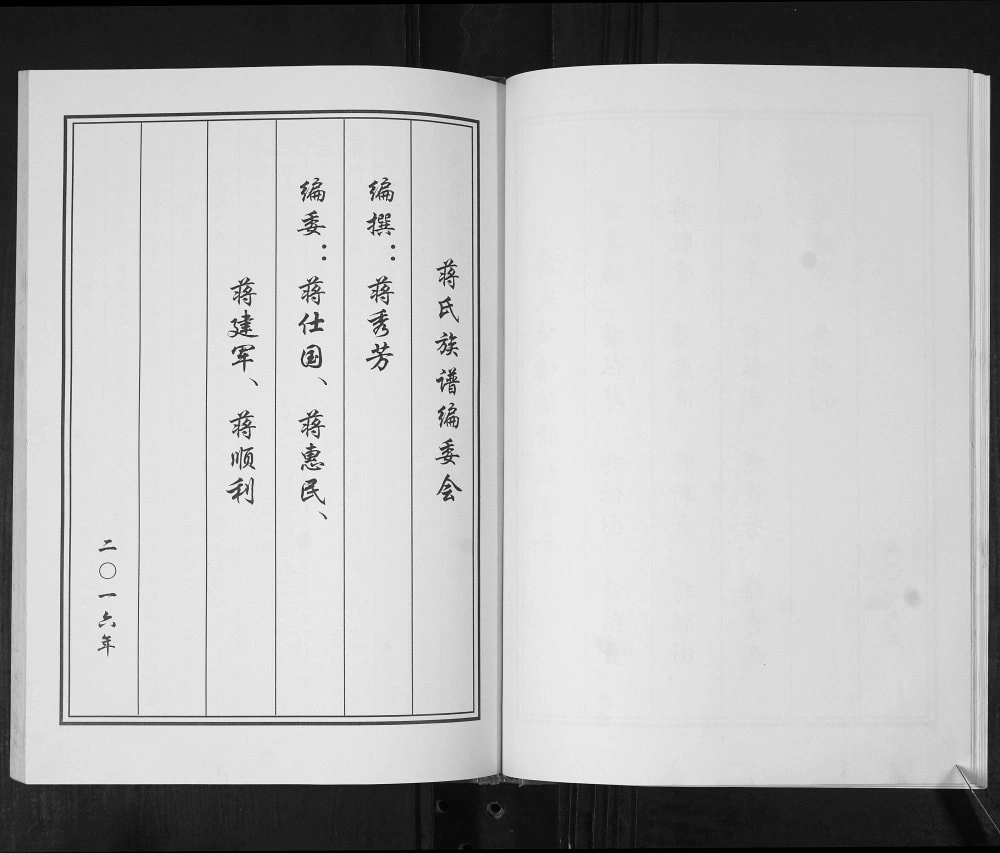 蒋氏族谱编委会
编撰：蒋秀芳
编委：蒋仕国、蒋惠民、
蒋建军、蒋顺利
二〇一六年